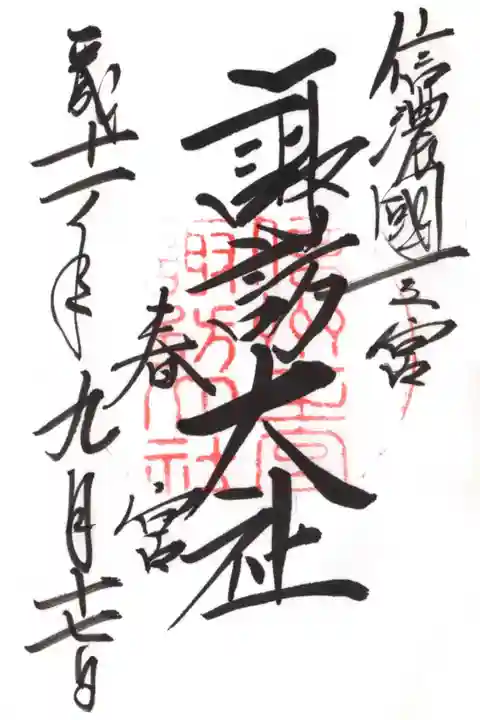 信濃國一之宮
諏訪大社
春宮
平成十一年九月十七日
諏訪大社